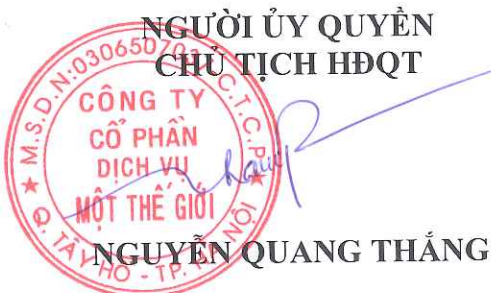 NGƯỜI ỦY QUYỀN
CHỦ TỊCH HĐQT
M.S.D.N:030650703
C.T.C.P
CÔNG TY
CỔ PHẦN
DỊCH VỤ
MỘT THẾ GIỚI
Q. TÂY HỒ - TP. HÀ NỘI
NGUYỄN QUANG THẮNG